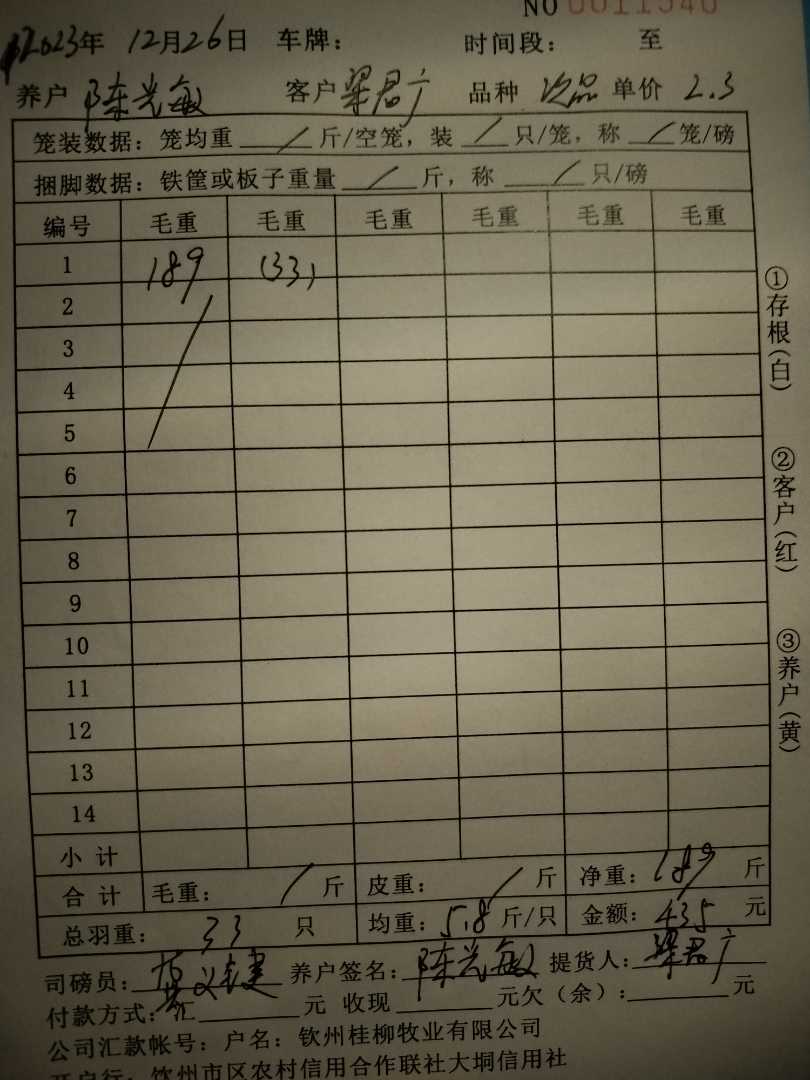 NO 0011540
2023年 12月26日 车牌: 时间段: 至
养户 陈光敏 客户 梁君广 品种 次品 单价 2.3
笼装数据: 笼均重 / 斤/空笼, 装 / 只/笼, 称 / 笼/磅
捆脚数据: 铁筐或板子重量 / 斤, 称 / 只/磅
编号 毛重 毛重 毛重 毛重 毛重 毛重
1 189 (33)
2
3
4
5
6
7
8
9
10
11
12
13
14
小计
合计 毛重: / 斤 皮重: / 斤 净重: 189 斤
总羽重: 33 只 均重: 5.8 斤/只 金额: 435 元
司磅员: 养户签名: 陈光敏 提货人: 梁君广
付款方式: 汇 元 收现 元欠(余): 元
公司汇款帐号: 户名: 钦州桂柳牧业有限公司
开户行: 钦州市区农村信用合作联社大垌信用社
①存根(白)
②客户(红)
③养户(黄)